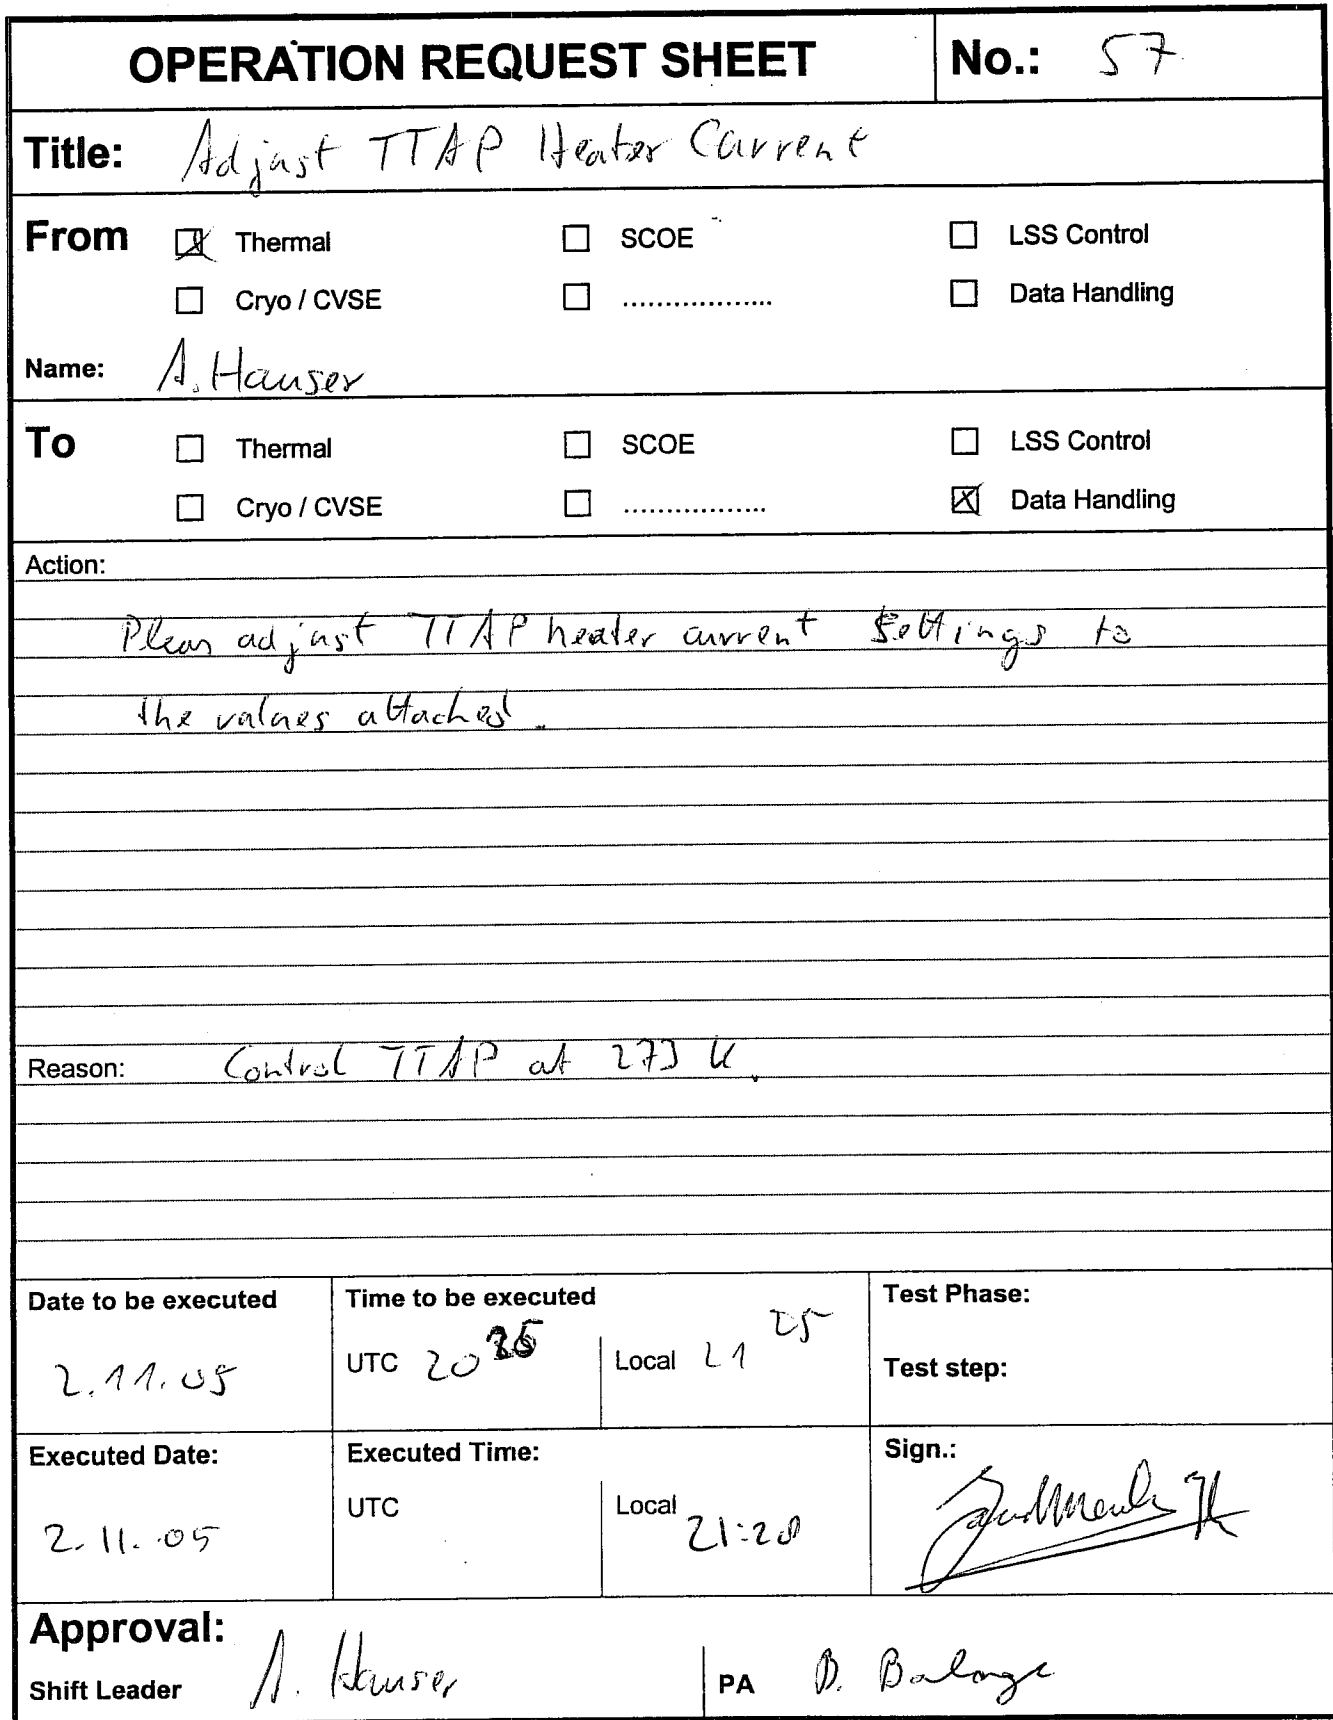 OPERATION REQUEST SHEET No.: 57
Title: Adjust TTAP Heater Current
From ☒ Thermal ☐ SCOE ☐ LSS Control
☐ Cryo / CVSE ☐ .................. ☐ Data Handling
Name: A. Hauser
To ☐ Thermal ☐ SCOE ☐ LSS Control
☐ Cryo / CVSE ☐ ................. ☒ Data Handling
Action:
Pleas adjust TTAP heater current settings to
the values attached.
Reason: Control TTAP at 273 K.
Date to be executed Time to be executed Test Phase:
2.11.05 UTC 20 Local 21 25 Test step:
Executed Date: Executed Time: Sign.:
2.11.05 UTC Local 21:28
Approval:
Shift Leader A. Hauser PA B.